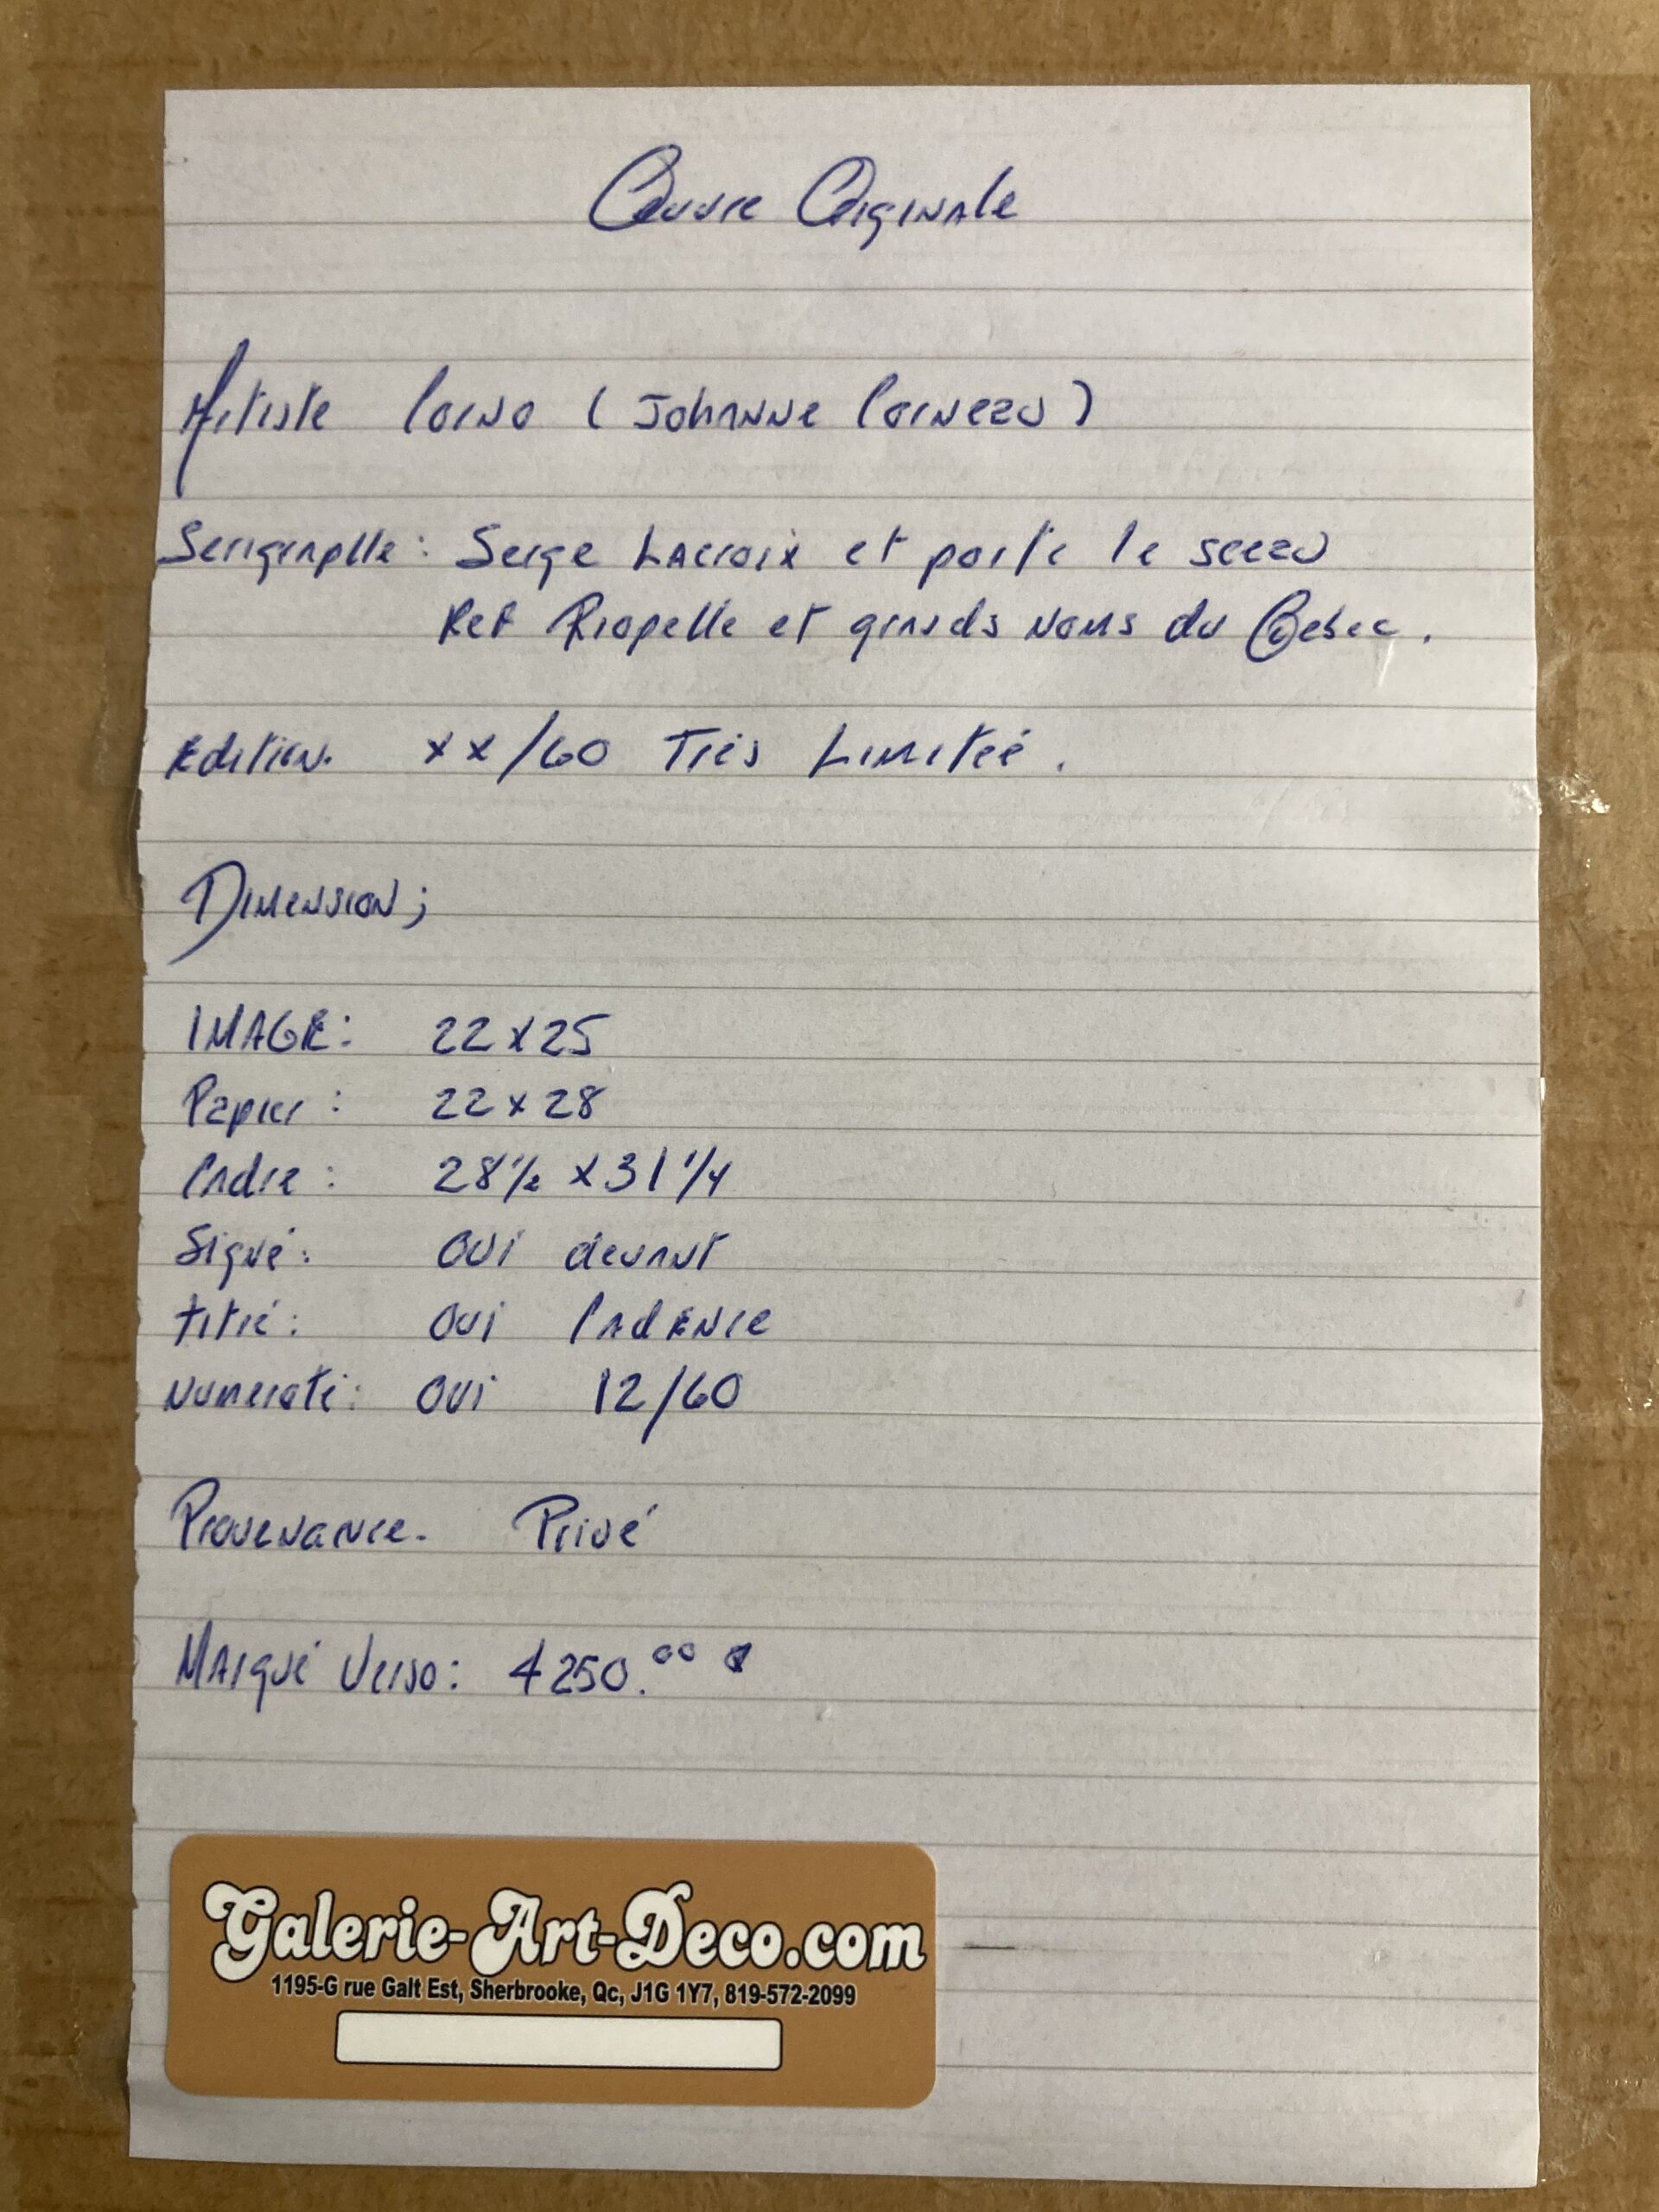 Œuvre Originale
Artiste Corno (Johanne Corneau)
Serigraphe: Serge Lacroix et porte le sceau
Ref Riopelle et grands noms du Québec.
Edition. xx/60 Très Limitéé.
Dimension;
IMAGE: 22x25
Papier: 22x28
Cadre: 28 1/2 x 31 1/4
Signé: OUI devant
titré: OUI Cadence
Numeroté: OUI 12/60
Provenance. Privé
Marqué Verso: 4250.00
Galerie-Art-Deco.com
1195-G rue Galt Est, Sherbrooke, Qc, J1G 1Y7, 819-572-2099